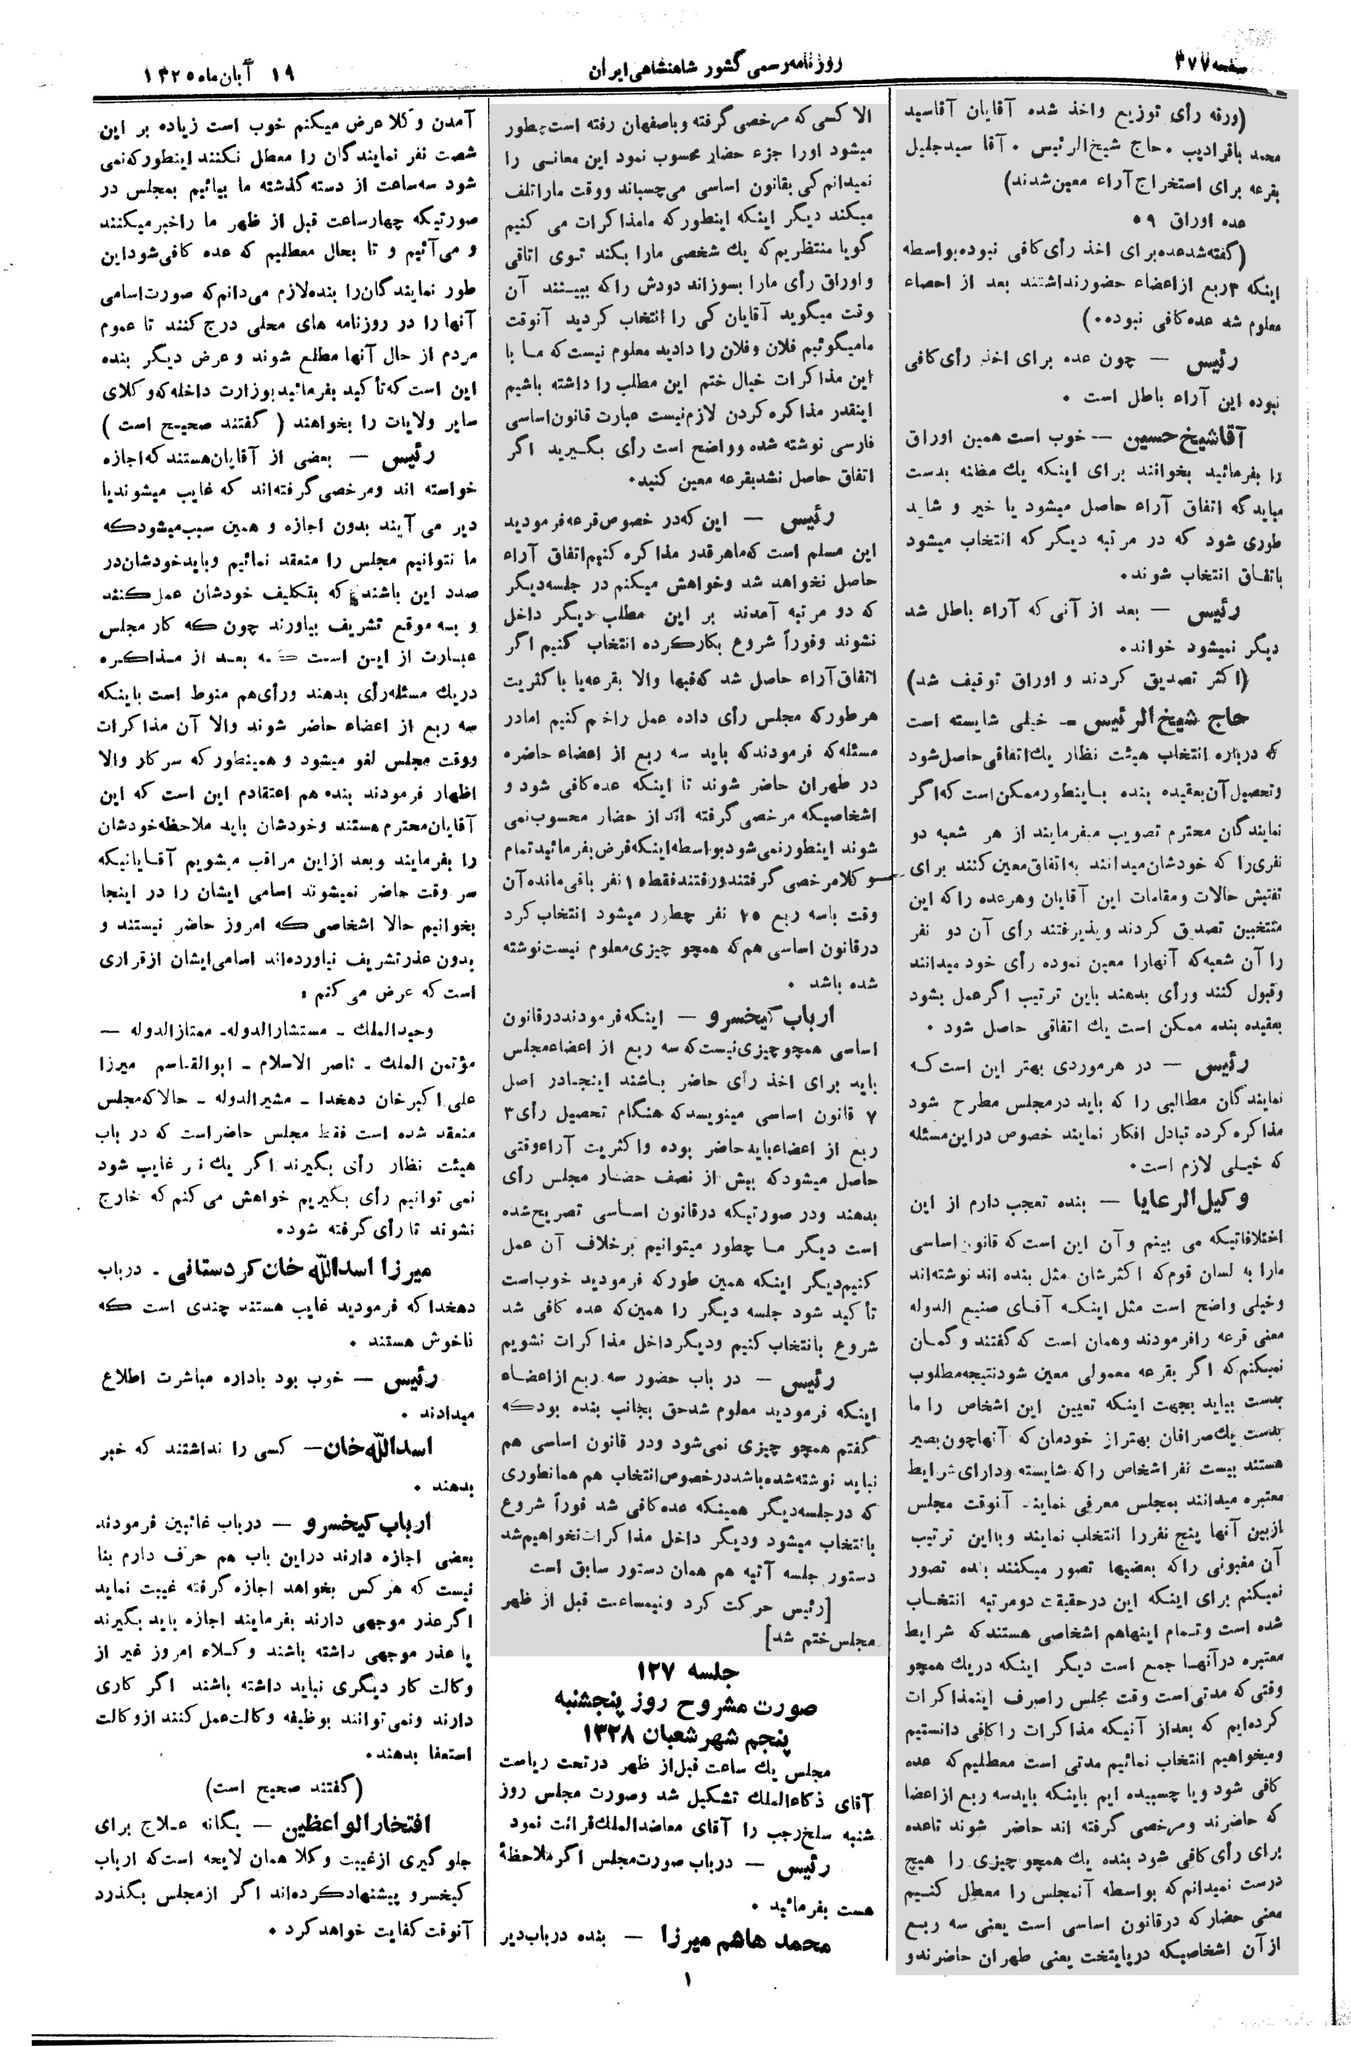 صفحه ۳۷۷
روزنامه رسمی کشور شاهنشاهی ایران
۱۹ آبان ماه ۱۳۲۵
(ورقه رأی توزیع واخذ شده آقایان آقاسید
محمد باقرادیب . حاج شیخ‌الرئیس . آقا سید جلیل
بقرعه برای استخراج آراء معین شدند)
عده اوراق ۵۹
(گفته شد عده برای اخذ رأی کافی نبوده بواسطه
اینکه ۳ ربع از اعضاء حضور نداشتند بعد از احصاء
معلوم شد عده کافی نبوده.)
رئیس – چون عده برای اخذ رأی کافی
نبوده این آراء باطل است .
آقاشیخ حسین – خوب است همین اوراق
را بفرمائید بخوانند برای اینکه یك مظنه بدست
میاید که اتفاق آراء حاصل میشود یا خیر و شاید
طوری شود که در مرتبه دیگر که انتخاب میشود
باتفاق انتخاب شوند.
رئیس – بعد از آنی که آراء باطل شد
دیگر نمیشود خواند.
(اکثر تصدیق کردند و اوراق توقیف شد)
حاج شیخ الرئیس – خیلی شایسته است
که درباره انتخاب هیئت نظار یك اتفاقی حاصل شود
وتحصیل آن بعقیده بنده باینطور ممکن است که اگر
نمایندگان محترم تصویب میفرمایند از هر شعبه دو
نفری را که خودشان میدانند به اتفاق معین کنند برای
تفتیش حالات ومقامات این آقایان وهر عده را که این
منتخبین تصدیق کردند وپذیرفتند رأی آن دو نفر
را آن شعبه که آنهارا معین نموده رأی خود میدانند
وقبول کنند ورأی بدهند باین ترتیب اگر عمل بشود
بعقیده بنده ممکن است یك اتفاقی حاصل شود .
رئیس – در هر موردی بهتر این است که
نمایندگان مطالبی را که باید در مجلس مطرح شود
مذاکره کرده تبادل افکار نمایند خصوص در این مسئله
که خیلی لازم است.
وکیل الرعایا – بنده تعجب دارم از این
اختلافاتیکه می بینم و آن این است که قانون اساسی
مارا به لسان قوم که اکثرشان مثل بنده اند نوشته‌اند
وخیلی واضح است مثل اینکه آقای صنیع الدوله
معنی قرعه رافرمودند وهمان است که گفتند وگمان
نمیکنم که اگر بقرعه معمولی معین شود نتیجه مطلوب
بدست بیاید بجهت اینکه تعیین این اشخاص را ما
بدست یك صرافان بهتر از خودمان که آنها چون بصیر
هستند بیست نفر اشخاص را که شایسته ودارای شرایط
معتبره میدانند بمجلس معرفی نمایند آنوقت مجلس
از بین آنها پنج نفر را انتخاب نمایند وبااین ترتیب
آن مغبونی را که بعضیها تصور میکنند بنده تصور
نمیکنم برای اینکه این در حقیقت دو مرتبه انتخاب
شده است وتمام اینها هم اشخاصی هستند که شرایط
معتبره در آنها جمع است دیگر اینکه در یك همچو
وقتی که مدتی است وقت مجلس را صرف این مذاکرات
کرده‌ایم که بعد از آنیکه مذاکرات را کافی دانستیم
ومیخواهیم انتخاب نمائیم مدتی است معطلیم که عده
کافی شود ویا چسبیده ایم باینکه باید سه ربع از اعضا
که حاضرند ومرخصی گرفته اند حاضر شوند تا عده
برای رأی کافی شود بنده یك همچو چیزی را هیچ
درست نمیدانم که بواسطه آن مجلس را معطل کنیم
معنی حضار که در قانون اساسی است یعنی سه ربع
از آن اشخاصیکه در پایتخت یعنی طهران حاضرند و
الا کسی که مرخصی گرفته وباصفهان رفته است چطور
میشود اورا جزء حضار محسوب نمود این معانی را
نمیدانم کی بقانون اساسی می‌چسباند ووقت مارا تلف
میکند دیگر اینکه اینطور که ما مذاکرات می کنیم
گویا منتظریم که یك شخصی مارا بکند توی اتاقی
واوراق رأی مارا بسوزاند دودش را که ببینند آن
وقت میگوید آقایان کی را انتخاب کردید آنوقت
مامیگوئیم فلان وفلان را دادید معلوم نیست که ما با
این مذاکرات خیال ختم این مطلب را داشته باشیم
اینقدر مذاکره کردن لازم نیست عبارت قانون اساسی
فارسی نوشته شده وواضح است رأی بگیرید اگر
اتفاق حاصل نشد بقرعه معین کنید.
رئیس – این که در خصوص قرعه فرمودید
این مسلم است که ماهر قدر مذاکره کنیم اتفاق آراء
حاصل نخواهد شد وخواهش میکنم در جلسه دیگر
که دو مرتبه آمدند بر این مطلب دیگر داخل
نشوند وفوراً شروع بکار کرده انتخاب کنیم اگر
اتفاق آراء حاصل شد که فبها والا بقرعه یا باکثریت
هر طور که مجلس رأی داده عمل راختم کنیم امادر
مسئله که فرمودند که باید سه ربع از اعضاء حاضره
در طهران حاضر شوند تا اینکه عده کافی شود و
اشخاصیکه مرخصی گرفته اند از حضار محسوب نمی
شوند اینطور نمی شود بواسطه اینکه فرض بفرمائید تمام
وکلا مرخصی گرفتند ورفتند فقط ۱۵ نفر باقی مانده آن
وقت باسه ربع ۲۵ نفر چطور میشود انتخاب کرد
در قانون اساسی هم که همچو چیزی معلوم نیست نوشته
شده باشد .
ارباب کیخسرو – اینکه فرمودند در قانون
اساسی همچو چیزی نیست که سه ربع از اعضاء مجلس
باید برای اخذ رأی حاضر باشند اینجا در اصل
۷ قانون اساسی مینویسد که هنگام تحصیل رأی ۳
ربع از اعضاء باید حاضر بوده واکثریت آراء وقتی
حاصل میشود که بیش از نصف حضار مجلس رأی
بدهند ودر صورتیکه در قانون اساسی تصریح شده
است دیگر ما چطور میتوانیم بر خلاف آن عمل
کنیم دیگر اینکه همین طور که فرمودید خوب است
تأکید شود جلسه دیگر را همین که عده کافی شد
شروع بانتخاب کنیم ودیگر داخل مذاکرات نشویم
رئیس – در باب حضور سه ربع از اعضاء
اینکه فرمودید معلوم شد حق بجانب بنده بود که
گفتم همچو چیزی نمی شود ودر قانون اساسی هم
نباید نوشته شده باشد در خصوص انتخاب هم همانطوری
که در جلسه دیگر همینکه عده کافی شد فوراً شروع
بانتخاب میشود ودیگر داخل مذاکرات نخواهیم شد
دستور جلسه آتیه هم همان دستور سابق است
[رئیس حرکت کرد ونیمساعت قبل از ظهر
مجلس ختم شد]
جلسه ۱۲۷
صورت مشروح روز پنجشنبه
پنجم شهر شعبان ۱۳۲۸
مجلس یك ساعت قبل از ظهر در تحت ریاست
آقای ذکاء الملك تشکیل شد وصورت مجلس روز
شنبه سلخ رجب را آقای معاضد الملك قرائت نمود
رئیس – در باب صورت مجلس اگر ملاحظهٔ
هست بفرمائید .
محمد هاشم میرزا – بنده در باب دیر
آمدن وکلا عرض میکنم خوب است زیاده بر این
شصت نفر نمایندگان را معطل نکنند اینطور که نمی
شود سه ساعت از دسته گذشته ما بیائیم بمجلس در
صورتیکه چهار ساعت قبل از ظهر ما را خبر میکنند
و می آئیم و تا بحال معطلیم که عده کافی شود این
طور نمایندگان را بنده لازم می دانم که صورت اسامی
آنها را در روزنامه های محلی درج کنند تا عموم
مردم از حال آنها مطلع شوند و عرض دیگر بنده
این است که تأکید بفرمائید بوزارت داخله که وکلای
سایر ولایات را بخواهند ( گفتند صحیح است )
رئیس – بعضی از آقایان هستند که اجازه
خواسته اند ومرخصی گرفته‌اند که غایب میشوند یا
دیر می آیند بدون اجازه و همین سبب میشود که
ما نتوانیم مجلس را منعقد نمائیم وباید خودشان در
صدد این باشند که بتکلیف خودشان عمل کنند
و به موقع تشریف بیاورند چون که کار مجلس
عبارت از این است که بعد از مذاکره
در یك مسئله رأی بدهند ورأی هم منوط است باینکه
سه ربع از اعضاء حاضر شوند والا آن مذاکرات
ووقت مجلس لغو میشود و همینطور که سرکار والا
اظهار فرمودند بنده هم اعتقادم این است که این
آقایان محترم هستند وخودشان باید ملاحظه خودشان
را بفرمایند وبعد از این مراقب میشویم آقایانیکه
سر وقت حاضر نمیشوند اسامی ایشان را در اینجا
بخوانیم حالا اشخاصی که امروز حاضر نیستند و
بدون عذر تشریف نیاورده‌اند اسامی ایشان از قراری
است که عرض می کنم :
وحید الملك – مستشار الدوله – ممتاز الدوله –
مؤتمن الملك – ناصر الاسلام – ابوالقاسم میرزا
علی اکبر خان دهخدا – مشیر الدوله – حالا که مجلس
منعقد شده است فقط مجلس حاضر است که در باب
هیئت نظار رأی بگیرند اگر یك نفر غایب شود
نمی توانیم رأی بگیریم خواهش می کنم که خارج
نشوند تا رأی گرفته شود.
میرزا اسد الله خان کردستانی – در باب
دهخدا که فرمودید غایب هستند چندی است که
ناخوش هستند .
رئیس – خوب بود باداره مباشرت اطلاع
میدادند .
اسد الله خان – کسی را نداشتند که خبر
بدهند .
ارباب کیخسرو – در باب غائبین فرمودند
بعضی اجازه دارند در این باب هم حرف دارم بنا
نیست که هر کس بخواهد اجازه گرفته غیبت نماید
اگر عذر موجهی دارند بفرمایند اجازه باید بگیرند
یا عذر موجهی داشته باشند وکلاء امروز غیر از
وکالت کار دیگری نباید داشته باشند اگر کاری
دارند ونمی توانند بوظیفه وکالت عمل کنند از وکالت
استعفا بدهند.
(گفتند صحیح است)
افتخار الواعظین – یگانه علاج برای
جلوگیری از غیبت وکلا همان لایحه است که ارباب
کیخسرو پیشنهاد کرده‌اند اگر از مجلس بگذرد
آنوقت کفایت خواهد کرد .
۱